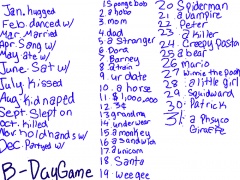 Jan. hugged
Feb. danced w/
Mar. Married
Apr. Sang w/
May ate w/
June Sat w/
July kissed
Aug kidnaped
Sept. Slept on
Oct. killed
Nov. hold hands w/
Dec. Partyed w/
B-Day Game
1 sponge bob
2 a hobo
3 mom
4 dad
5 a Stranger
6 Dora
7 Barney
8 a train
9 ur date
10 a horse
11 $1,000,000
12 a 3£
13 grandma
14 underwear
15 a monkey
16 a sandwich
17 a unicorn
18 Santa
19 weegee
20 Spiderman
21 a Vampire
22 Peter
23 a killer
24 Creepy Pasta
25 a bear
26 mario
27 Winnie the Pooh
28 a little girl
29 Squidward
30 Patrick
31 a Physco
Giraffe